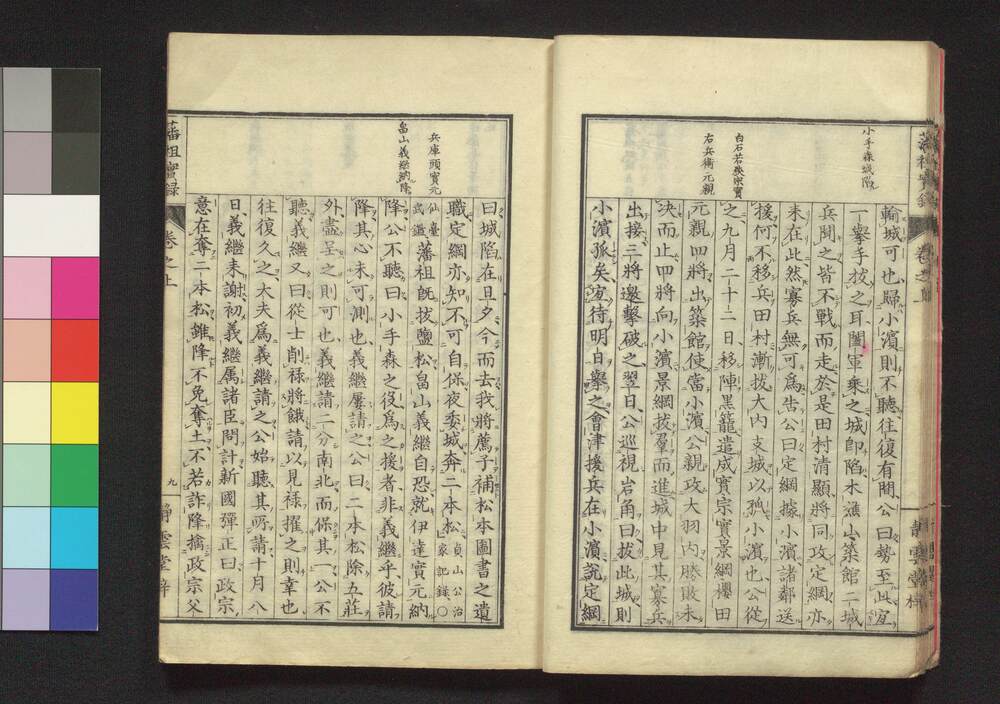 小手森城陷
輸城可也歸小濱則不聽往復有間公曰勢至此宜
一擧手拔之耳闔軍乘之城卽陷木樵山築館二城
兵聞之皆不戰而走於是田村清顯將同攻定綱亦
来在此然寡兵無可爲告公曰定綱據小濱諸鄰送
援何不移兵田村漸拔大内支城以孤小濱也公從
之九月二十二日移陣黒籠遣成實宗實景綱櫻田
白石若狹宗實
右兵衞元親
元親四將出築館使當小濱公親攻大羽内勝敗未
决而止四將向小濱景綱拔羣而進城中見其寡兵
出接三將邀擊破之翌日公巡視岩角曰拔此城則
小濱孤矣宜待明日擧之會津援兵在小濱說定綱
曰城陷在旦夕今而去我將薦子補松本圖書之遺
職定綱亦知不可自保夜委城奔二本松貞山公治家記録〇
兵庫頭實元
畠山義繼納降
仙臺武鑑藩祖旣拔鹽松畠山義繼自恐就伊達實元納
降公不聽曰小手森之役爲之援者非義繼乎彼請
降其心未可測也義繼屢請之公曰二本松除五莊
外盡呈之則可也義繼請二分南北而保其一公不
聽義繼又曰從士削祿將餓請以見祿擢之則幸也
往復久之大夫爲義繼請之公始聽其所請十月八
日義繼来謝初義繼屬諸臣問計新國彈正曰政宗
意在奪二本松雖降不免奪土不若詐降擒政宗父
藩祖實録
卷之上
九
靜雲堂梓